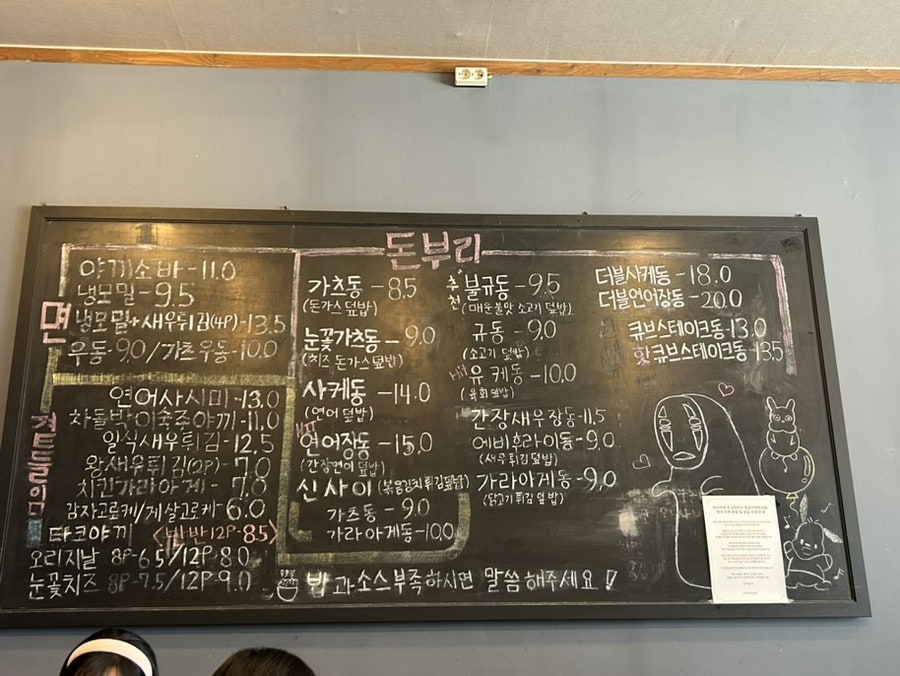 돈부리
면
야끼소바-11.0
냉모밀-9.5
냉모밀+새우튀김(4P)-13.5
우동-9.0/가츠우동-10.0
곁들임
연어사시미-13.0
차돌박이숙주야끼-11.0
일식새우튀김-12.5
왕새우튀김(2P)-7.0
치킨가라아게-7.0
감자고로케/게살고로케-6.0
타코야끼 <반반12P-8.5>
오리지날 8P-6.5/12P-8.0
눈꽃치즈 8P-7.5/12P-9.0
가츠동-8.5
(돈가스덮밥)
눈꽃가츠동-9.0
(치즈돈가스덮밥)
사케동-14.0
(연어덮밥)
HIT
연어장동-15.0
(간장연어덮밥)
신사이(볶음김치튀김덮밥)
가츠동-9.0
가라아게동-10.0
추천
불규동-9.5
(매운불맛소고기덮밥)
규동-9.0
(소고기덮밥)
Hit
유케동-10.0
(육회덮밥)
간장새우장동-11.5
에비후라이동-9.0
(새우튀김덮밥)
가라아게동-9.0
(닭고기튀김덮밥)
더블사케동-18.0
더블연어장동-20.0
큐브스테이크동-13.0
핫큐브스테이크동-13.5
밥과소스부족하시면 말씀해주세요!